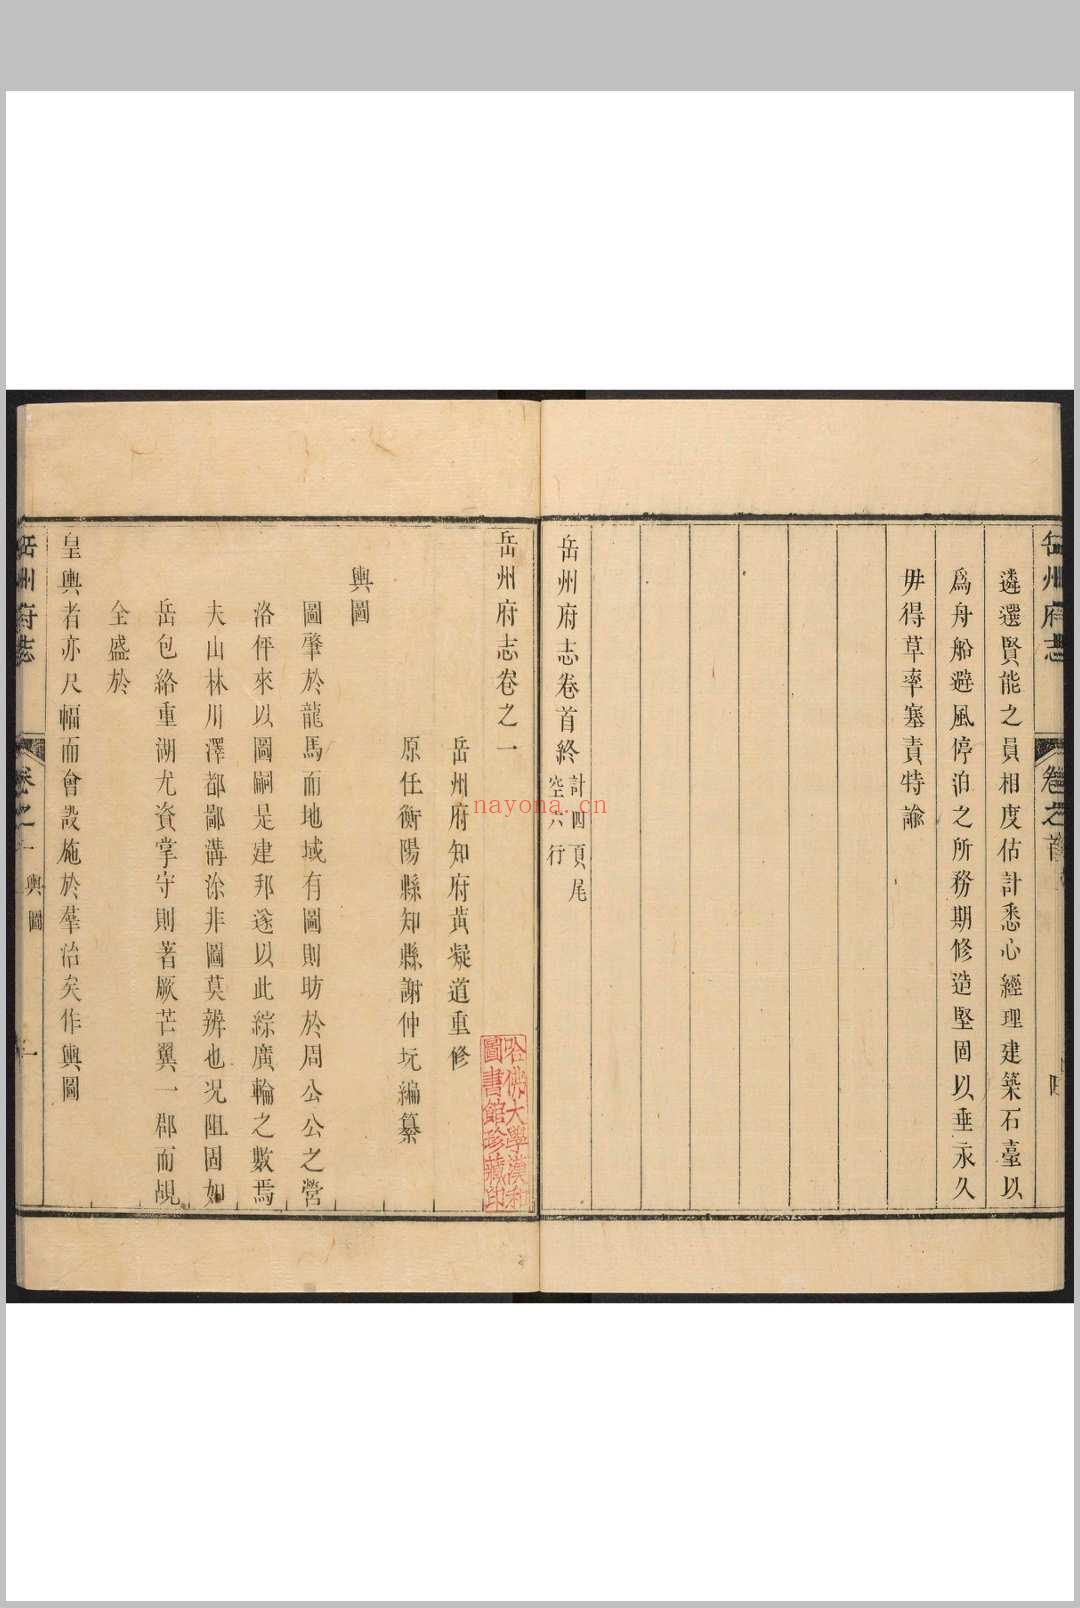 岳州府志
卷之首
遴選賢能之員相度估計悉心經理建築石臺以
爲舟船避風停泊之所務期修造堅固以垂永久
毋得草率塞責特諭
岳州府志卷首終
計四頁尾
空六行
岳州府志卷之一
岳州府知府黃凝道重修
原任衡陽縣知縣謝仲玩編纂
輿圖
圖肇於龍馬而地域有圖則昉於周公公之營
洛伻來以圖嗣是建邦遂以此綜廣輪之數焉
夫山林川澤都鄙溝涂非圖莫辨也况阻固如
岳包絡重湖尤資掌守則著厥芒翼一郡而覘
全盛於
皇輿者亦尺幅而會設施於羣治矣作輿圖
岳州府志
卷之一
輿圖
一
哈佛大學漢和
圖書館珍藏印
nayona.cn